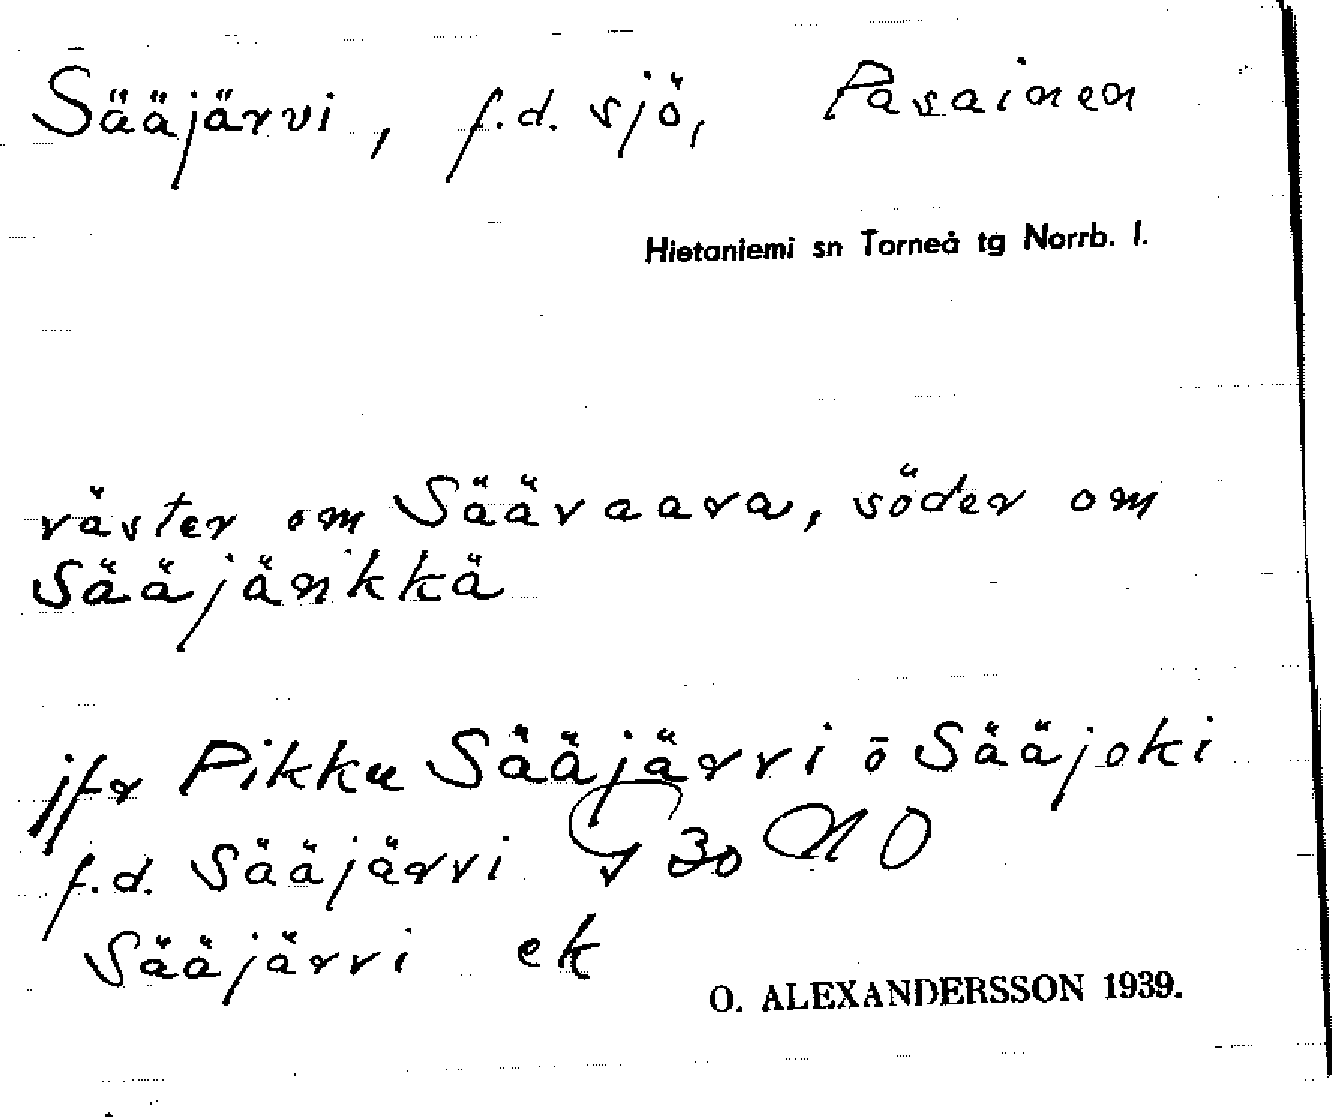 Sääjärvi, f.d. sjö, Pasainen
Hietaniemi sn Torneå tg Norrb. l.
väster om Säävaara, söder om
Sääjänkkä
jfr Pikku Sääjärvi o Sääjoki
f.d. Sääjärvi G 30 NO
Sääjärvi ek
O. ALEXANDERSSON 1939.